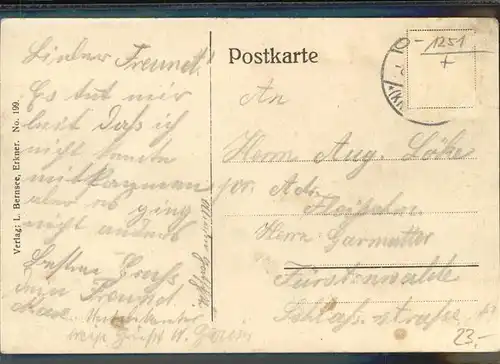 Lieber Freund!
Es tut mir
leit Daß ich
nicht konnte
mitkommen
aber es ging
nicht anders
Besten Gruß
dein Freund
Max.
Verlag: L. Bernsee, Erkner. No. 199.
Postkarte
10- 1251
+
An
Herrn Aug. Löke
per Adr.
Herrn Garmatter
Fürstenwalde
Schloß-straße
23.-